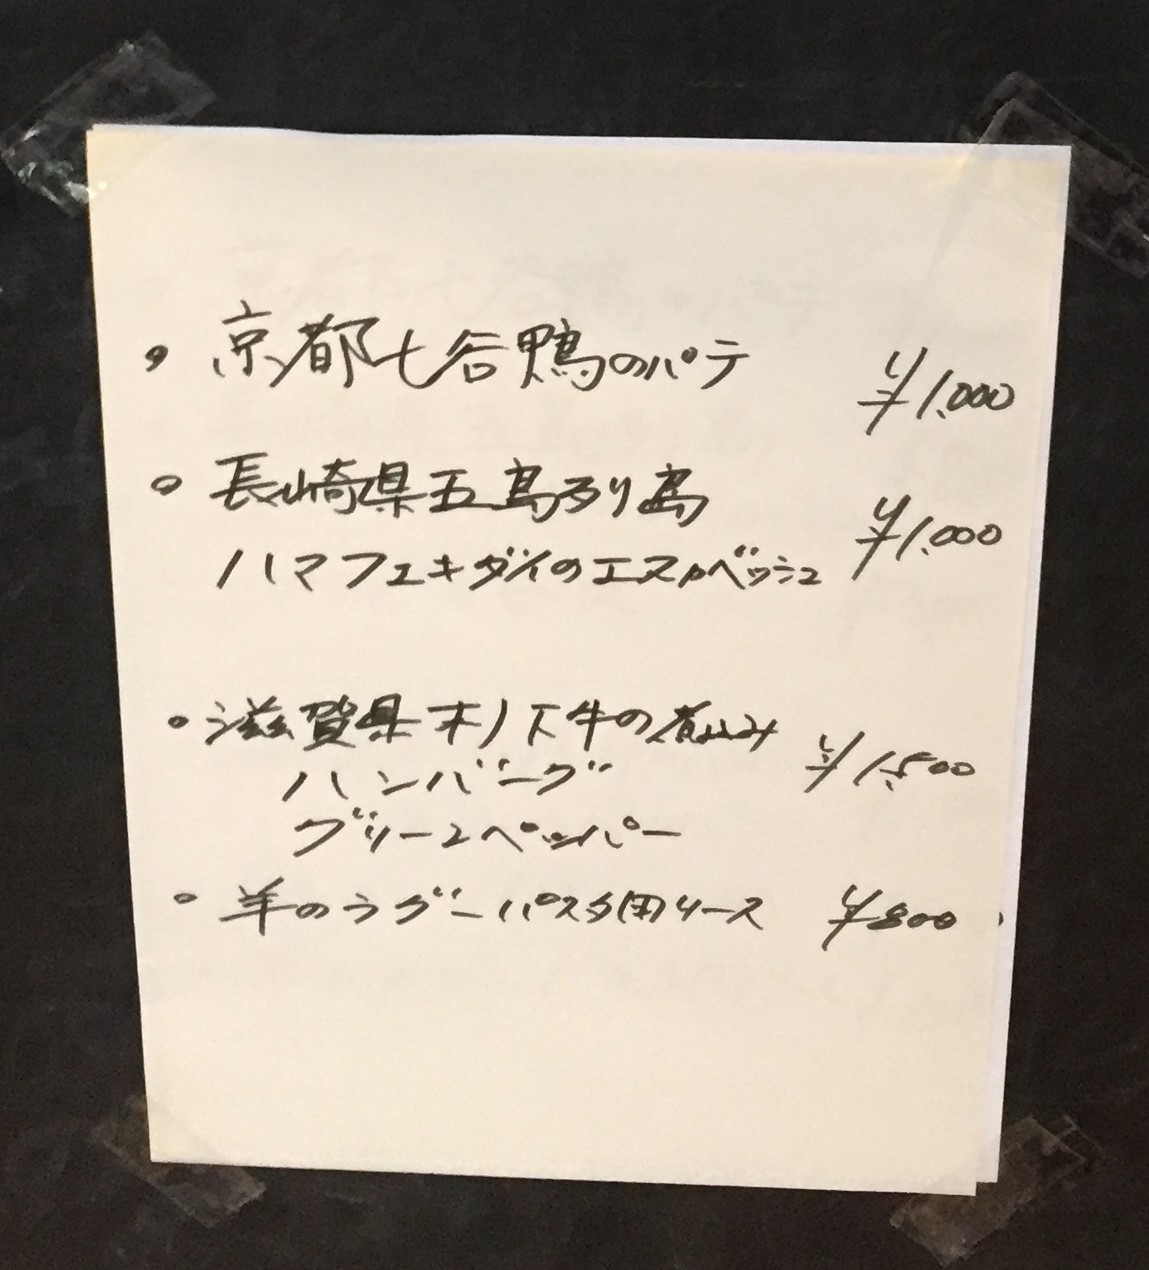 • 京都七谷鴨のパテ ¥1,000
• 長崎県五島列島 ¥1,000
ハマフエキダイのエスカベッシュ
• 滋賀県木ノ下牛の煮込み ¥1,500
ハンバーグ
グリーンペッパー
• 羊のラグーパスタ用ソース ¥800